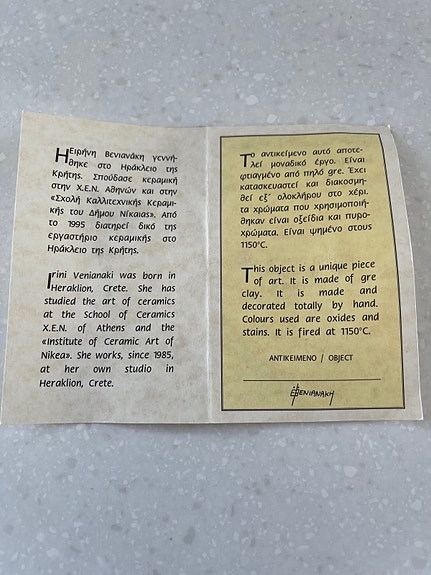 Η Ειρήνη Βενιανάκη γεννή-
θηκε στο Ηράκλειο της
Κρήτης. Σπούδασε κεραμική
στην Χ.Ε.Ν. Αθηνών και στην
«Σχολή Καλλιτεχνικής Κεραμι-
κής του Δήμου Νίκαιας». Από
το 1995 διατηρεί δικό της
εργαστήριο κεραμικής στο
Ηράκλειο της Κρήτης.
Irini Venianaki was born in
Heraklion, Crete. She has
studied the art of ceramics
at the School of Ceramics
X.E.N. of Athens and the
«Institute of Ceramic Art of
Nikea». She works, since 1985,
at her own studio in
Heraklion, Crete.
Το αντικείμενο αυτό αποτε-
λεί μοναδικό έργο. Είναι
φτιαγμένο από πηλό gre. Έχει
κατασκευαστεί και διακοσμη-
θεί εξ΄ ολοκλήρου στο χέρι.
τα χρώματα που χρησιμοποιή-
θηκαν είναι οξείδια και πυρο-
χρώματα. Είναι ψημένο στους
1150°C.
This object is a unique piece
of art. It is made of gre
clay. It is made and
decorated totally by hand.
Colours used are oxides and
stains. It is fired at 1150°C.
ΑΝΤΙΚΕΙΜΕΝΟ / OBJECT
ΒΕΝΙΑΝΑΚΗ